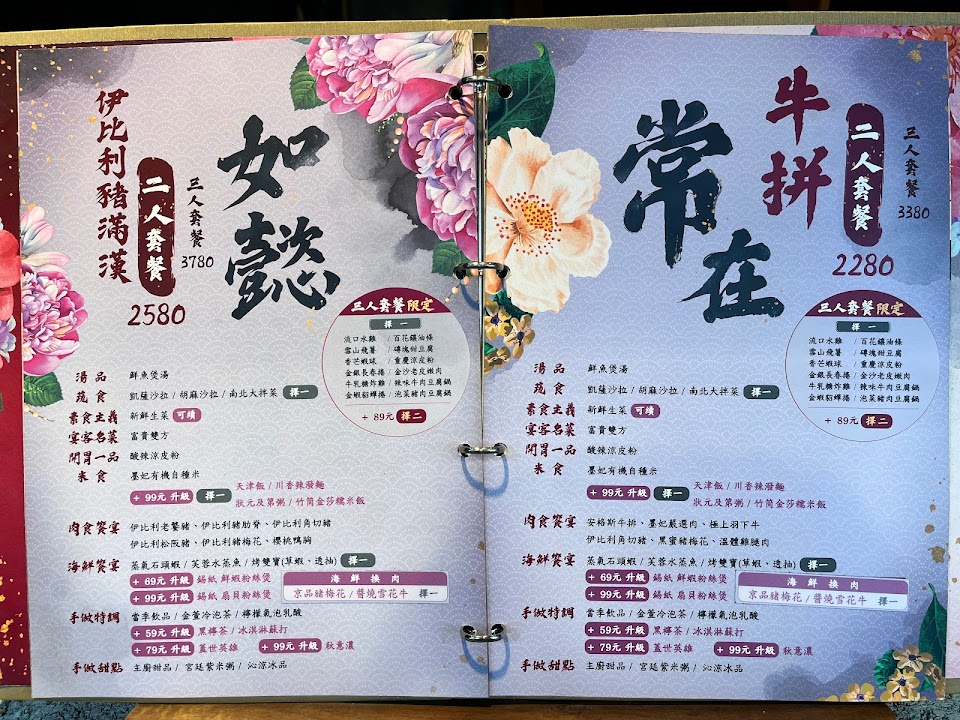 伊比利豬滿漢
二人套餐
2580
三人套餐
3780
如懿
三人套餐限定
擇一
流口水雞 / 百花鑲油條
雲山飛薯 / 磚塊甜豆腐
香芒蝦球 / 重慶涼皮粉
金銀長春捲 / 金沙老皮嫩肉
牛乳糖炸雞 / 辣味牛肉豆腐鍋
金蝦貂蟬捲 / 泡菜豬肉豆腐鍋
+ 89元 擇二
湯品 鮮魚煲湯
蔬食 凱薩沙拉 / 胡麻沙拉 / 南北大拌菜 擇一
素食主義 新鮮生菜 可續
宴客名菜 富貴雙方
開胃一品 酸辣涼皮粉
米食 墨妃有機自種米
+ 99元 升級 擇一 天津飯 / 川香辣潑麵
狀元及第粥 / 竹筒金莎糯米飯
肉食饗宴 伊比利老饕豬、伊比利豬肋脊、伊比利角切豬
伊比利松阪豬、伊比利豬梅花、櫻桃鴨胸
海鮮饗宴 蒸氣石頭蝦 / 芙蓉水蒸魚 / 烤雙寶(草蝦、透抽) 擇一
+ 69元 升級 錫紙 鮮蝦粉絲煲
+ 99元 升級 錫紙 扇貝粉絲煲
海鮮換肉
京品豬梅花 / 醬燒雪花牛 擇一
手做特調 當季飲品 / 金萱冷泡茶 / 檸檬氣泡乳酸
+ 59元 升級 黑檸茶 / 冰淇淋蘇打
+ 79元 升級 蓋世英雄 + 99元 升級 秋意濃
手做甜點 主廚甜品 / 宮廷紫米粥 / 沁涼冰品
常在
牛拼
二人套餐
2280
三人套餐
3380
三人套餐限定
擇一
流口水雞 / 百花鑲油條
雲山飛薯 / 磚塊甜豆腐
香芒蝦球 / 重慶涼皮粉
金銀長春捲 / 金沙老皮嫩肉
牛乳糖炸雞 / 辣味牛肉豆腐鍋
金蝦貂蟬捲 / 泡菜豬肉豆腐鍋
+ 89元 擇二
湯品 鮮魚煲湯
蔬食 凱薩沙拉 / 胡麻沙拉 / 南北大拌菜 擇一
素食主義 新鮮生菜 可續
宴客名菜 富貴雙方
開胃一品 酸辣涼皮粉
米食 墨妃有機自種米
+ 99元 升級 擇一 天津飯 / 川香辣潑麵
狀元及第粥 / 竹筒金莎糯米飯
肉食饗宴 安格斯牛排、墨妃嚴選肉、極上羽下牛
伊比利角切豬、黑蜜豬梅花、溫體雞腿肉
海鮮饗宴 蒸氣石頭蝦 / 芙蓉水蒸魚 / 烤雙寶(草蝦、透抽) 擇一
+ 69元 升級 錫紙 鮮蝦粉絲煲
+ 99元 升級 錫紙 扇貝粉絲煲
海鮮換肉
京品豬梅花 / 醬燒雪花牛 擇一
手做特調 當季飲品 / 金萱冷泡茶 / 檸檬氣泡乳酸
+ 59元 升級 黑檸茶 / 冰淇淋蘇打
+ 79元 升級 蓋世英雄 + 99元 升級 秋意濃
手做甜點 主廚甜品 / 宮廷紫米粥 / 沁涼冰品